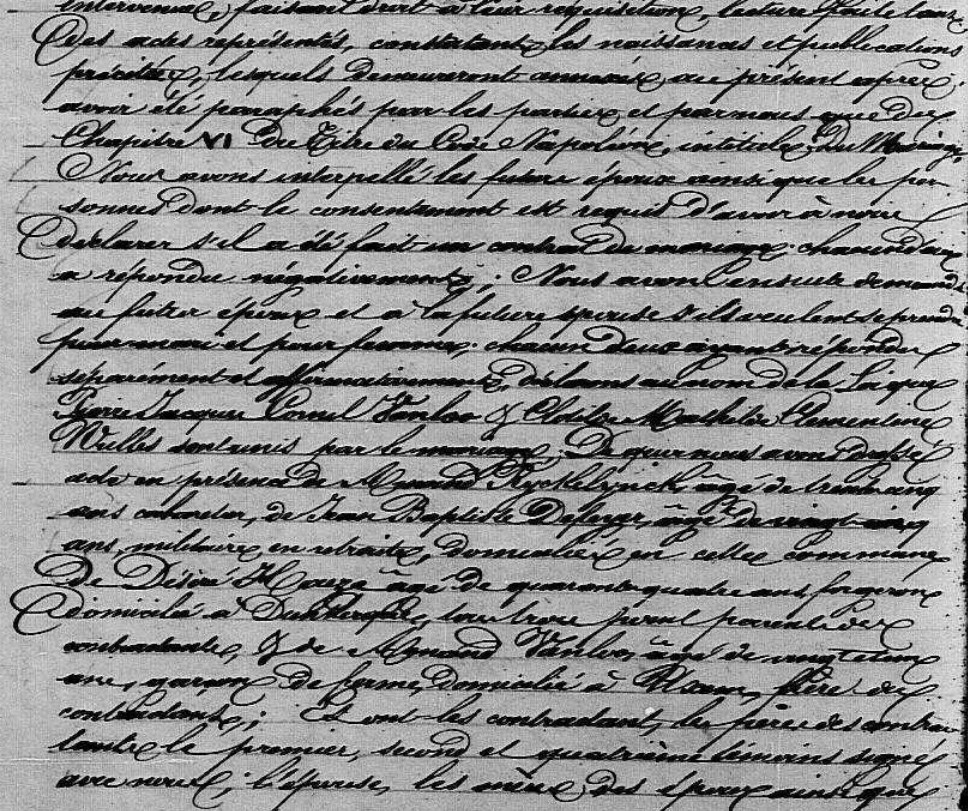 intervenue, faisant droit à leur réquisition, lecture faite tant
des actes représentés, constatant les naissances et publications
précitées, lesquels demeureront annexés au présent après
avoir été paraphés par les parties et par nous que du
Chapitre VI du Titre du Code Napoléon, intitulé du Mariage,
Nous avons interpellé les futurs époux ainsi que les per
sonnes dont le consentement est requis d'avoir à nous
déclarer s'il a été fait un contrat de mariage; chacun d'eux
a répondu négativement; Nous avons ensuite demandé
au futur époux et à la future épouse s'ils veulent se prendre
pour mari et pour femme; chacun d'eux ayant répondu
séparément et affirmativement, déclarons au nom de la Loi que
Pierre Jacques Cornil Vanloo & Clotilde Mathilde Clementine
Wulles sont unis par le mariage; De quoi nous avons dressé
acte en présence de Amand Ryckelynck, âgé de trente cinq
ans, de Jean Baptiste âgé de vingt cinq
ans, militaire en retraite, domiciliés en cette commune
de Désiré âgé de quarante quatre ans forgeron
domicilié à Dunkerque, tous trois point parents des
contractants, & de Amand Vanloo, âgé de vingt
ans, garçon de ferme, domicilié à frère du
contractant; Et ont les contractant, les pères des contrac
tants le premier, second et quatrième témoins signé
avec nous; l'épouse, les mères des époux ainsi que